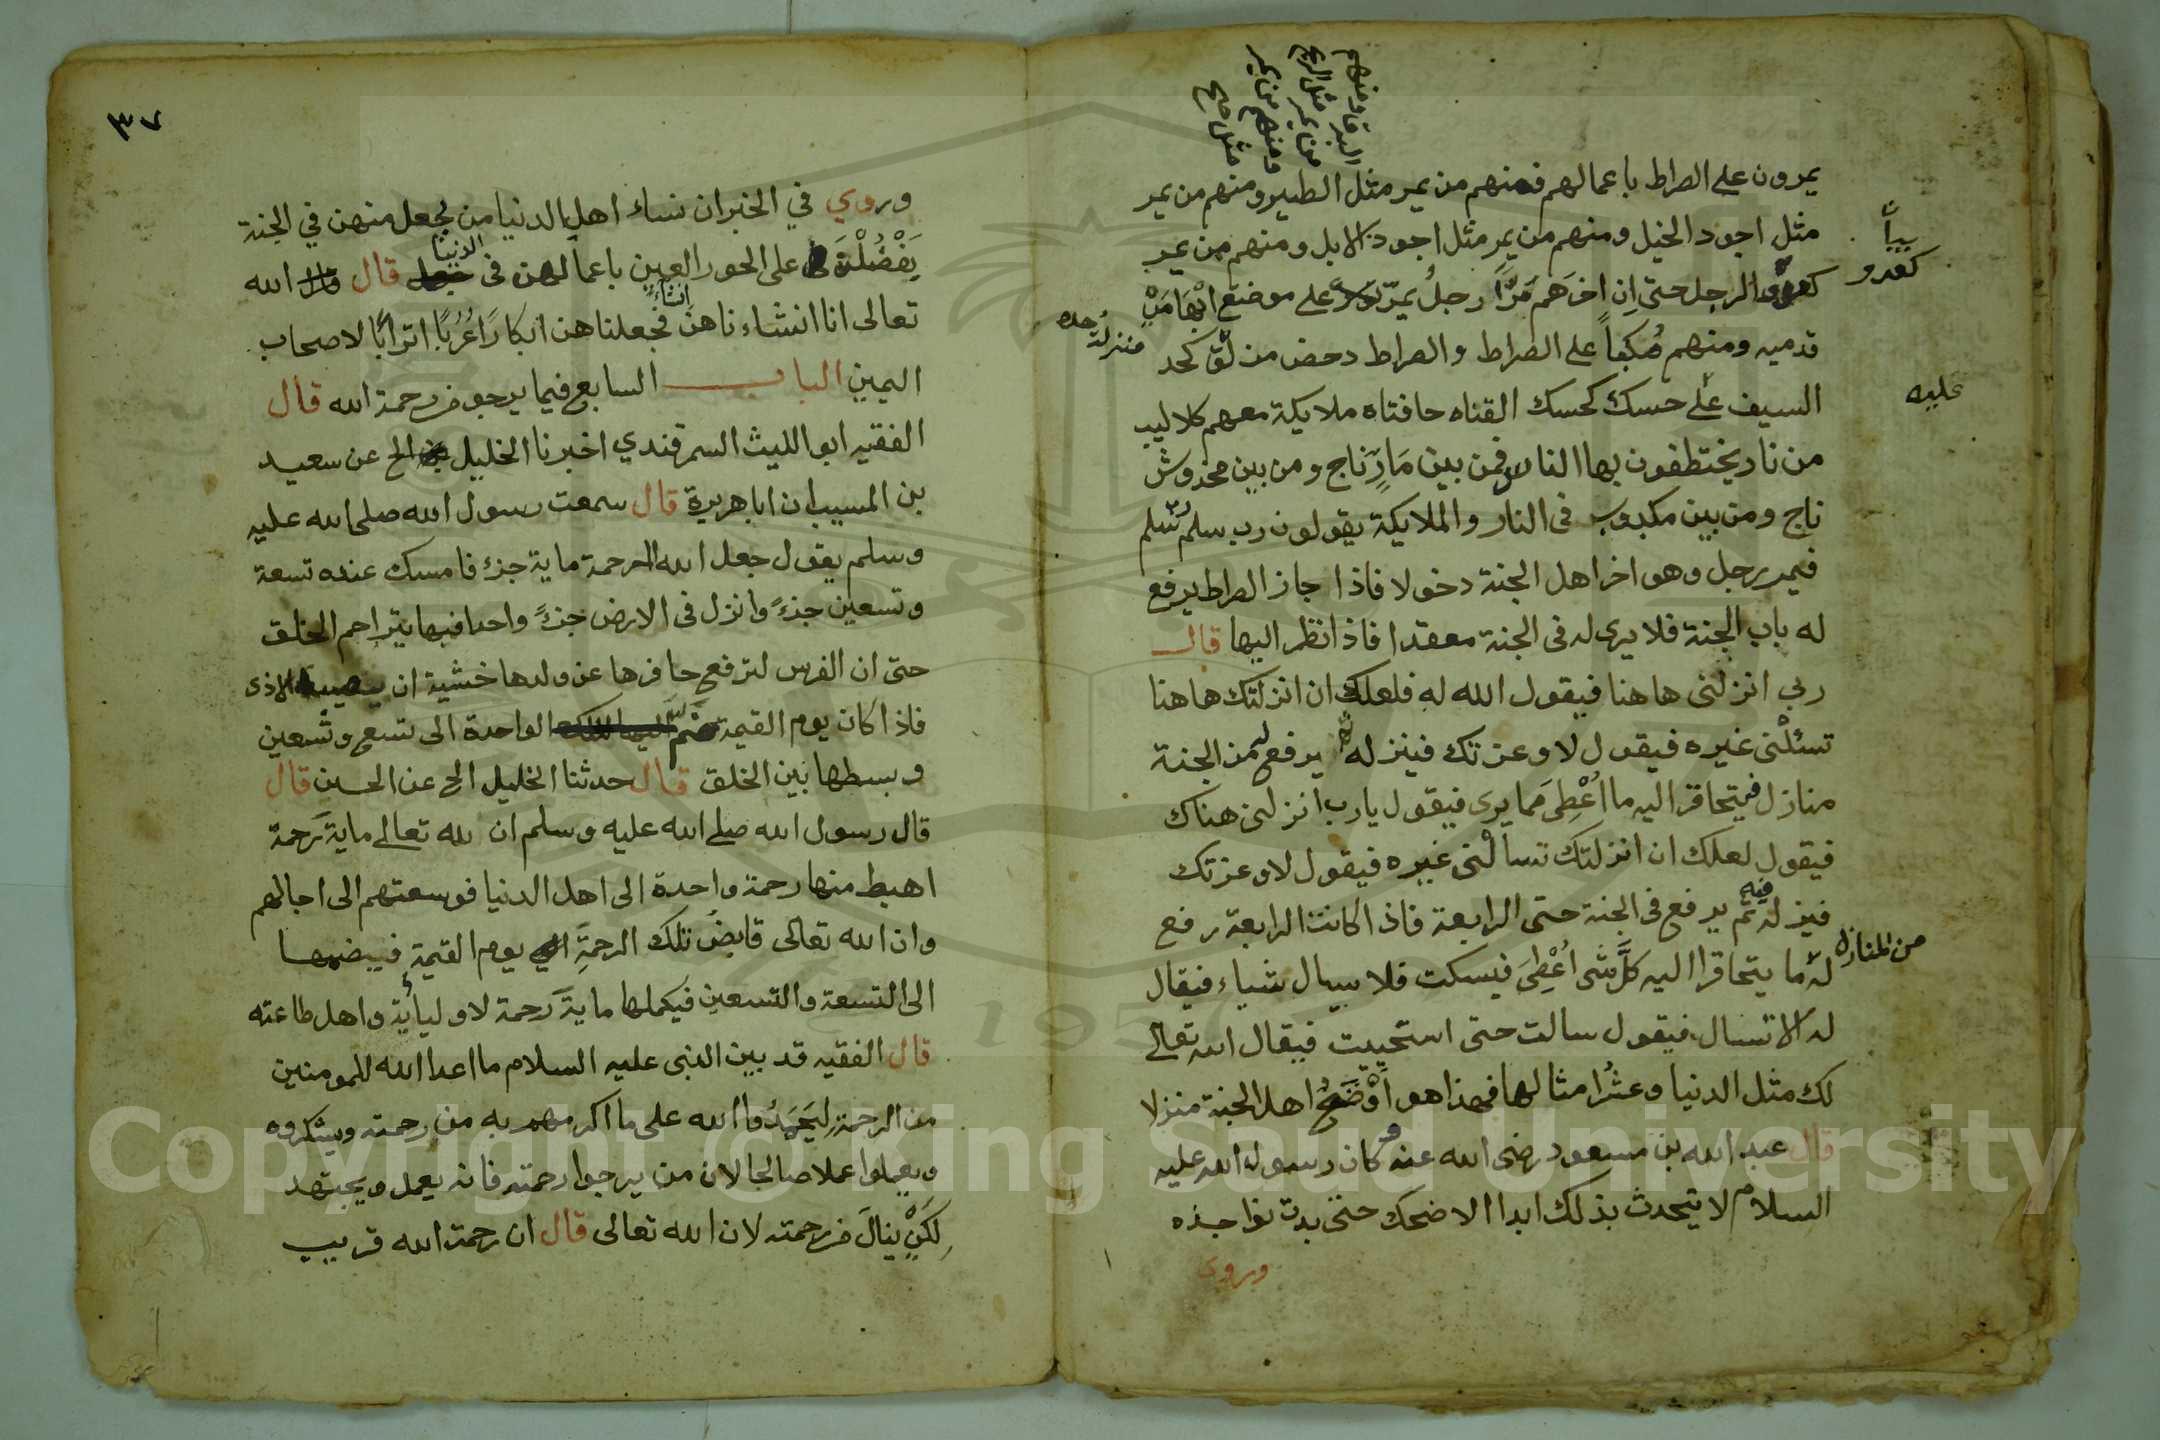 البرق ومنهم
من يمر مثل الريح
ومنهم من يمر
مثل
يمرون على الصراط باعمالهم فمنهم من يمر مثل الطير ومنهم من يمر
مثل اجود الخيل ومنهم من يمر مثل اجود الابل ومنهم من يمر
كعدو الرجل حتى اِن اخرهم مَرًّا رجلُ يمرّ على موضع ابْهَامَيْ
كعدو
قدميه ومنهم مُكبًا على الصراط والصراط دحض من لّق كحد
السيف على حسك كحسك القتاه حافتاه ملايكة معهم كلاليب
عليه
من نار يختطفون بها الناس فمن بين مَارٍّ ناج ومن بين مخدوش
ناج ومن بين مكبوب فى النار والملايكة يقولون رب سلم سَلم
فيمر رجل وهو اخر اهل الجنة دخولا فاذا جاز الصراط يرفع
له باب الجنة فلا يرى له فى الجنة معقدا فاذا نظر اليها قال
ربي انزلنى هاهنا فيقول الله له فلعلك ان انزلتك هاهنا
تسئلْنى غيره فيقول لا وعزتك فينزله ثم يرفع له من الجنة
منازل فيتحاقر اليه ما اُعْطِىَ مما يرى فيقول يارب انزلنى هناك
فيقول لعلك ان انزلتك تسالْنى غيره فيقول لا وعزتك
فينزله فيه ثم يرفع فى الجنة حتى الرابعة فاذا كانت الرابعة رفع
من المنازل
له ما يتحاقر اليه كلَّ شى اُعْطِىَ فيسكت فلا يسال شياء فيقال
له الا تسال فيقول سالت حتى استحييت فيقال الله تعالى
لك مثل الدنيا وعشرا مثالها فهذا هو اَوْضَعُ اهل الجنة منزلا
قال عبد الله بن مسعود رضى الله عنه وكان رسول الله عليه
السلام لا يتحدث بذلك ابدا الا ضحك حتى بدت نواجذه
وروى
٣٧
وروي في الخبر ان نساء اهل الدنيا من يجعل منهن في الجنة
يَفْضُلْنَ على الحور العين باعمالهن فى الدنيا قال الله
تعالى انا انشاء ناهن انشاءً فجعلناهن ابكارًا عُرُبًا اترابًا لاصحاب
اليمين الباب السابع فيما يرجو من رحمة الله قال
الفقيه ابو الليث السمرقندي اخبرنا الخليل الخ عن سعيد
بن المسيب ان ابا هريرة قال سمعت رسول الله صلى الله عليه
وسلم يقول جعل الله الرحمة ماية جزء فامسك عنده تسعة
وتسعين جزءً وانزل فى الارض جزءً واحدا فبها يتراحم الخلق
حتى ان الفرس لترفع حافرها عن ولدها خشية ان يصيبه الاذى
فاذا كان يوم القيمة ضم الواحدة الى تسع وتسعين
وبسطها بين الخلق قال حدثنا الخليل الخ عن الحسن قال
قال رسول الله صلى الله عليه وسلم ان لله تعالى ماية رحمة
اهبط منها رحمة واحدة الى اهل الدنيا فوسعتهم الى اجالهم
وان الله تعالى قابضُ تلك الرحمةِ يوم القيمة فيضمها
الى التسعة والتسعين فيكملها ماية رحمة لاوليائه واهل طاعته
قال الفقيه قد بين النبى عليه السلام ما اعدا الله للمومنين
من الرحمة لِيَحْمَدُوا الله على ما اكرمهم به من رحمته ويشكروه
ويعملوا عملا صالحا لان من يرجوا رحمته فانه يعمل ويجتهد
لِكَىْ ينالَ من رحمته لان الله تعالى قال ان رحمة الله قريب
Copyright © King Saud University